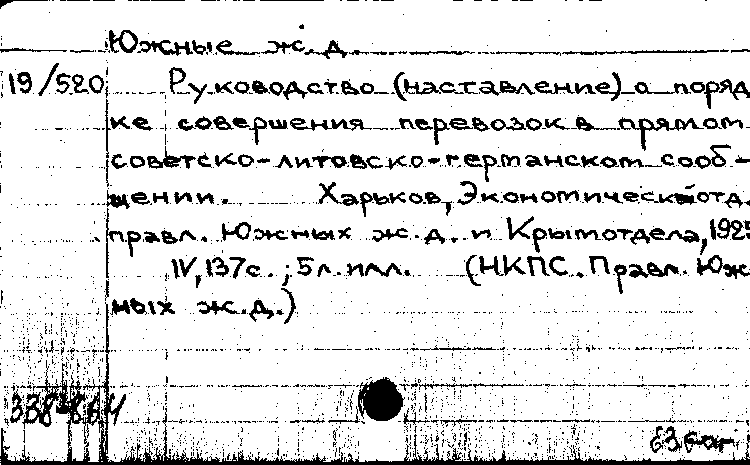 Южные ж.д.
19/520 Руководство (наставление) о поряд
ке совершения перевозок в прямом
советско-литовско-германском сооб-
щении. Харьков, Экономическ отд.
правл. Южных ж.д. и Крымотдела, 1925
IV, 137с.; 5л.илл. (НКПС. Правл. Юж
ных ж.д.)
338-86.4